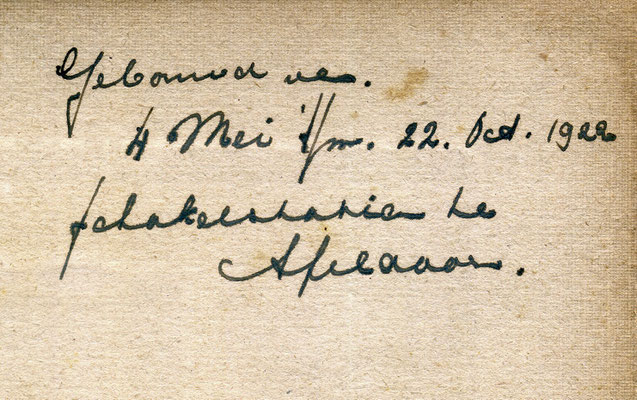 Gebouwd van.
4 Mei t/m. 22. Oct. 1922
schakelstation te
Apeldoorn.